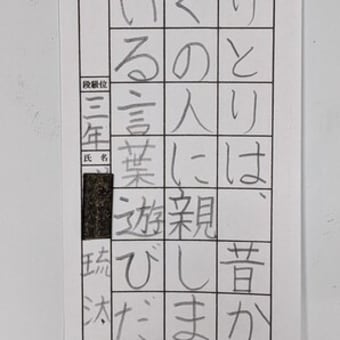 りとりは、昔か
くの人に親しま
いる言葉遊びだ
段級位
三年
氏名
琉汰